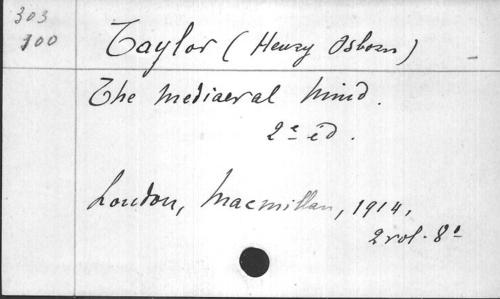 303
100
Taylor (Henry Osborn)
The mediaeval mind.
2e éd.
London, Macmillan, 1914,
2 vol. 8°